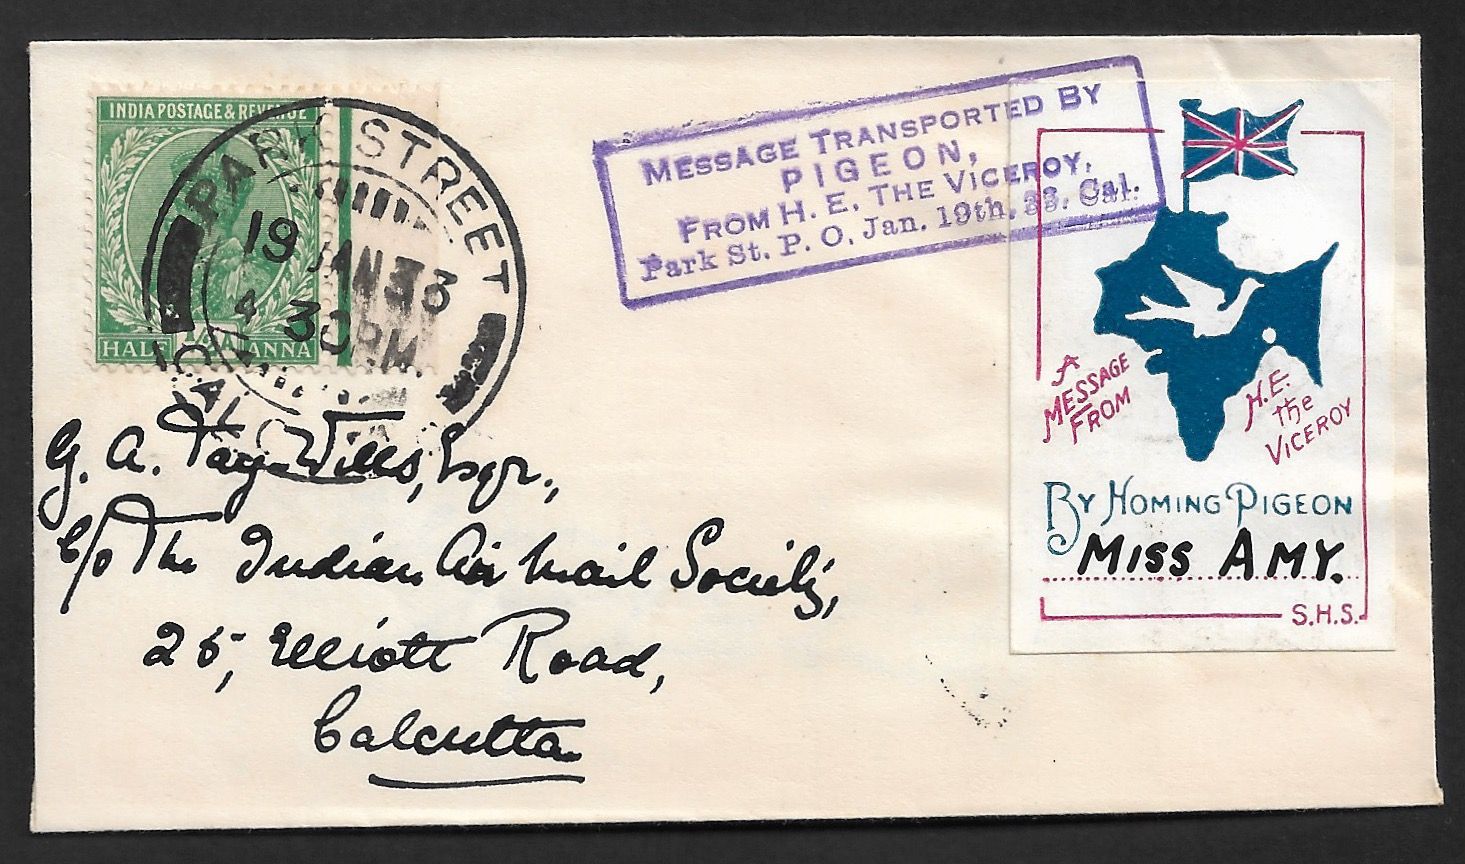 INDIA POSTAGE & REVENUE
HALF ANNA
PARK STREET
19 JAN 33
4 30 PM
MESSAGE TRANSPORTED BY
PIGEON,
FROM H. E. THE VICEROY,
Park St. P. O. Jan. 19th. 33. Cal.
A
MESSAGE
FROM
H.E.
the
VICEROY
BY HOMING PIGEON
MISS AMY.
S.H.S.
G. A. Esqr.,
c/o The Indian Air Mail Society,
25, Elliott Road,
Calcutta